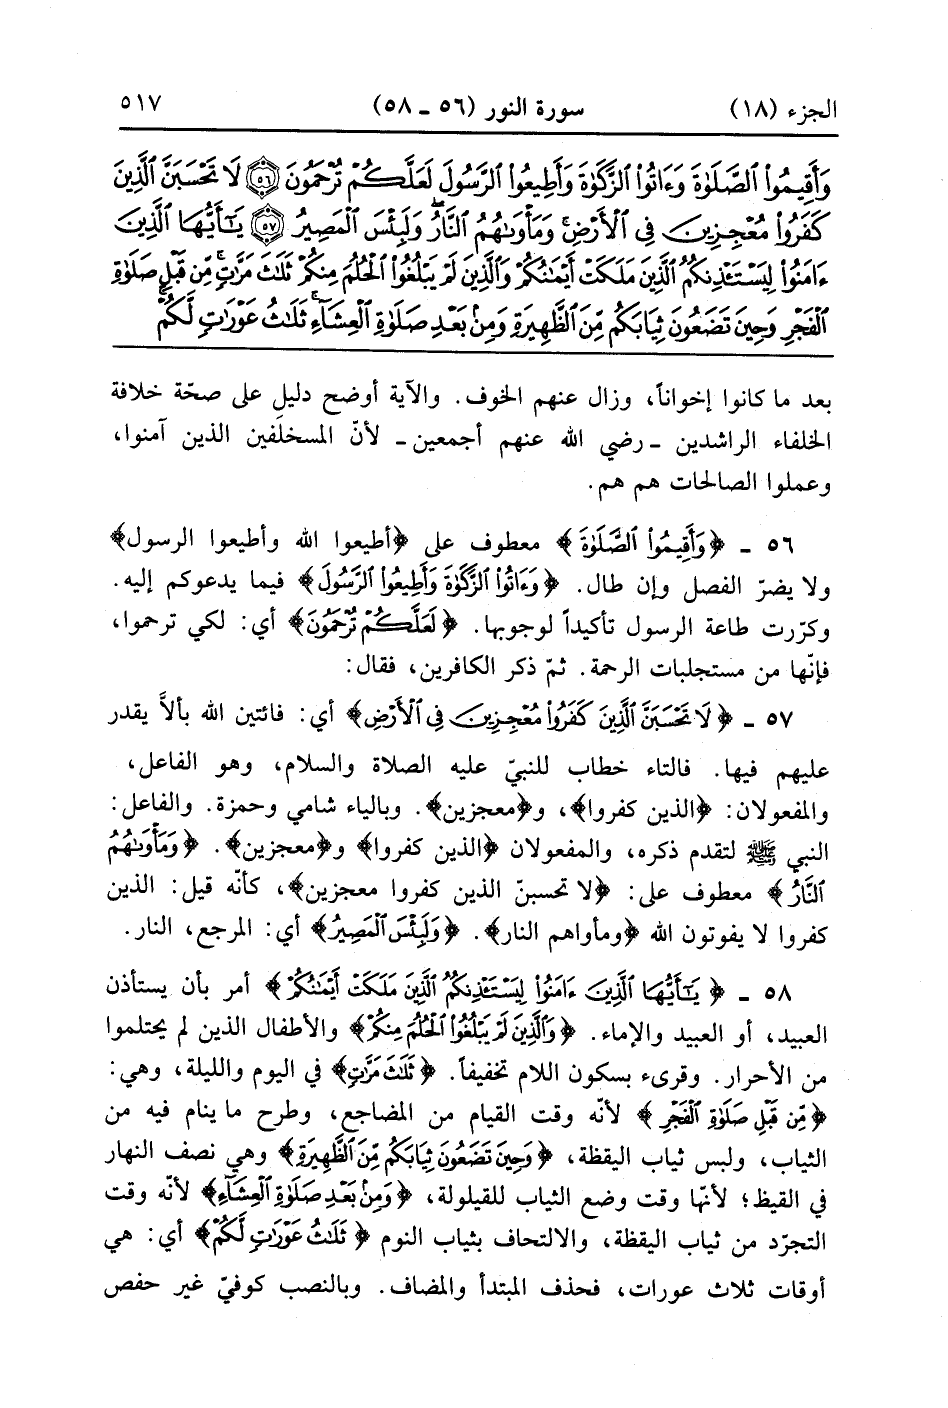 الجزء (١٨) سورة النور (٥٦ ـ ٥٨) ٥١٧
وَأَقِيمُوا۟ ٱلصَّلَوٰةَ وَءَاتُوا۟ ٱلزَّكَوٰةَ وَأَطِيعُوا۟ ٱلرَّسُولَ لَعَلَّكُمْ تُرْحَمُونَ ٥٦ لَا تَحْسَبَنَّ ٱلَّذِينَ
كَفَرُوا۟ مُعْجِزِينَ فِى ٱلْأَرْضِ ۚ وَمَأْوَىٰهُمُ ٱلنَّارُ ۖ وَلَبِئْسَ ٱلْمَصِيرُ ٥٧ يَـٰٓأَيُّهَا ٱلَّذِينَ
ءَامَنُوا۟ لِيَسْتَـْٔذِنكُمُ ٱلَّذِينَ مَلَكَتْ أَيْمَـٰنُكُمْ وَٱلَّذِينَ لَمْ يَبْلُغُوا۟ ٱلْحُلُمَ مِنكُمْ ثَلَـٰثَ مَرَّٰتٍ ۚ مِّن قَبْلِ صَلَوٰةِ
ٱلْفَجْرِ وَحِينَ تَضَعُونَ ثِيَابَكُم مِّنَ ٱلظَّهِيرَةِ وَمِنۢ بَعْدِ صَلَوٰةِ ٱلْعِشَآءِ ۚ ثَلَـٰثُ عَوْرَٰتٍ لَّكُمْ ۚ
بعد ما كانوا إخواناً، وزال عنهم الخوف. والآية أوضح دليل على صحّة خلافة
الخلفاء الراشدين ـ رضي الله عنهم أجمعين ـ لأنّ المستخلَفين الذين آمنوا،
وعملوا الصالحات هم هم.
٥٦ ـ ﴿وَأَقِيمُوا۟ ٱلصَّلَوٰةَ﴾ معطوف على ﴿أطيعوا الله وأطيعوا الرسول﴾
ولا يضرّ الفصل وإن طال. ﴿وَءَاتُوا۟ ٱلزَّكَوٰةَ وَأَطِيعُوا۟ ٱلرَّسُولَ﴾ فيما يدعوكم إليه.
وكرّرت طاعة الرسول تأكيداً لوجوبها. ﴿لَعَلَّكُمْ تُرْحَمُونَ﴾ أي: لكي ترحموا،
فإنّها من مستجلبات الرحمة. ثمّ ذكر الكافرين، فقال:
٥٧ ـ ﴿لَا تَحْسَبَنَّ ٱلَّذِينَ كَفَرُوا۟ مُعْجِزِينَ فِى ٱلْأَرْضِ﴾ أي: فائتين الله بألاَّ يقدر
عليهم فيها. فالتاء خطاب للنبيّ عليه الصلاة والسلام، وهو الفاعل،
والمفعولان: ﴿الذين كفروا﴾، و﴿معجزين﴾. وبالياء شامي وحمزة. والفاعل:
النبي ﷺ لتقدم ذكره، والمفعولان ﴿الذين كفروا﴾ و﴿معجزين﴾. ﴿وَمَأْوَىٰهُمُ
ٱلنَّارُ﴾ معطوف على: ﴿لا تحسبنّ الذين كفروا معجزين﴾، كأنّه قيل: الذين
كفروا لا يفوتون الله ﴿ومأواهم النار﴾. ﴿وَلَبِئْسَ ٱلْمَصِيرُ﴾ أي: المرجع، النار.
٥٨ ـ ﴿يَـٰٓأَيُّهَا ٱلَّذِينَ ءَامَنُوا۟ لِيَسْتَـْٔذِنكُمُ ٱلَّذِينَ مَلَكَتْ أَيْمَـٰنُكُمْ﴾ أمر بأن يستأذن
العبيد، أو العبيد والإماء. ﴿وَٱلَّذِينَ لَمْ يَبْلُغُوا۟ ٱلْحُلُمَ مِنكُمْ﴾ والأطفال الذين لم يحتلموا
من الأحرار. وقرىء بسكون اللام تخفيفاً. ﴿ثَلَـٰثَ مَرَّٰتٍ﴾ في اليوم والليلة، وهي:
﴿مِّن قَبْلِ صَلَوٰةِ ٱلْفَجْرِ﴾ لأنه وقت القيام من المضاجع، وطرح ما ينام فيه من
الثياب، ولبس ثياب اليقظة، ﴿وَحِينَ تَضَعُونَ ثِيَابَكُم مِّنَ ٱلظَّهِيرَةِ﴾ وهي نصف النهار
في القيظ؛ لأنهّا وقت وضع الثياب للقيلولة، ﴿وَمِنۢ بَعْدِ صَلَوٰةِ ٱلْعِشَآءِ﴾ لأنّه وقت
التجرّد من ثياب اليقظة، والالتحاف بثياب النوم ﴿ثَلَـٰثُ عَوْرَٰتٍ لَّكُمْ﴾ أي: هي
أوقات ثلاث عورات، فحذف المبتدأ والمضاف. وبالنصب كوفيّ غير حفص